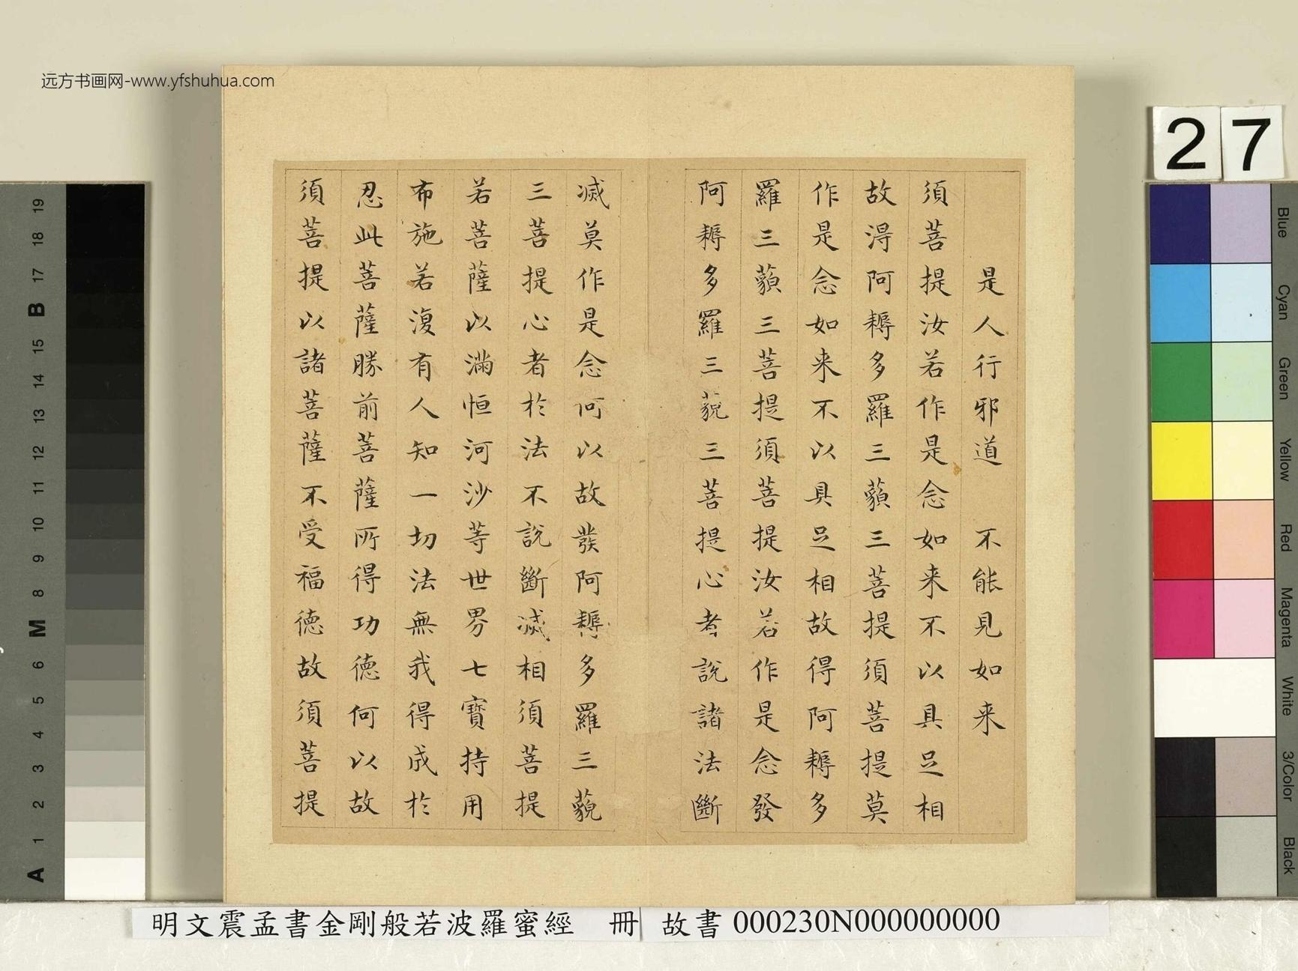 远方书画网-www.yfshuhua.com
是人行邪道　不能見如来
須菩提汝若作是念如来不以具足相
故淂阿耨多羅三藐三菩提須菩提莫
作是念如来不以具足相故得阿耨多
羅三藐三菩提須菩提汝若作是念發
阿耨多羅三藐三菩提心者說諸法斷
滅莫作是念何以故發阿耨多羅三藐
三菩提心者於法不說斷滅相須菩提
若菩薩以滿恒河沙等世界七寶持用
布施若復有人知一切法無我得成於
忍此菩薩勝前菩薩所得功德何以故
須菩提以諸菩薩不受福德故須菩提
27
Blue
Cyan
Green
Yellow
Red
Magenta
White
3/Color
Black
19
18
17
B
15
14
13
12
11
10
9
8
M
6
5
4
3
2
1
A
明文震孟書金剛般若波羅蜜經　冊　故書 000230N000000000